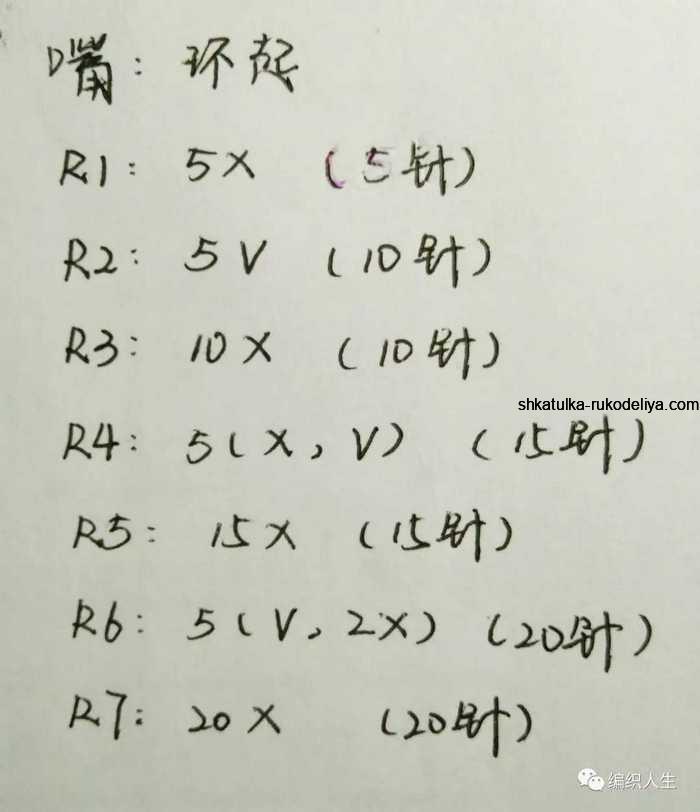 嘴: 环起
R1: 5X (5针)
R2: 5V (10针)
R3: 10X (10针)
shkatulka-rukodeliya.com
R4: 5(X, V) (15针)
R5: 15X (15针)
R6: 5(V, 2X) (20针)
R7: 20X (20针)
编织人生